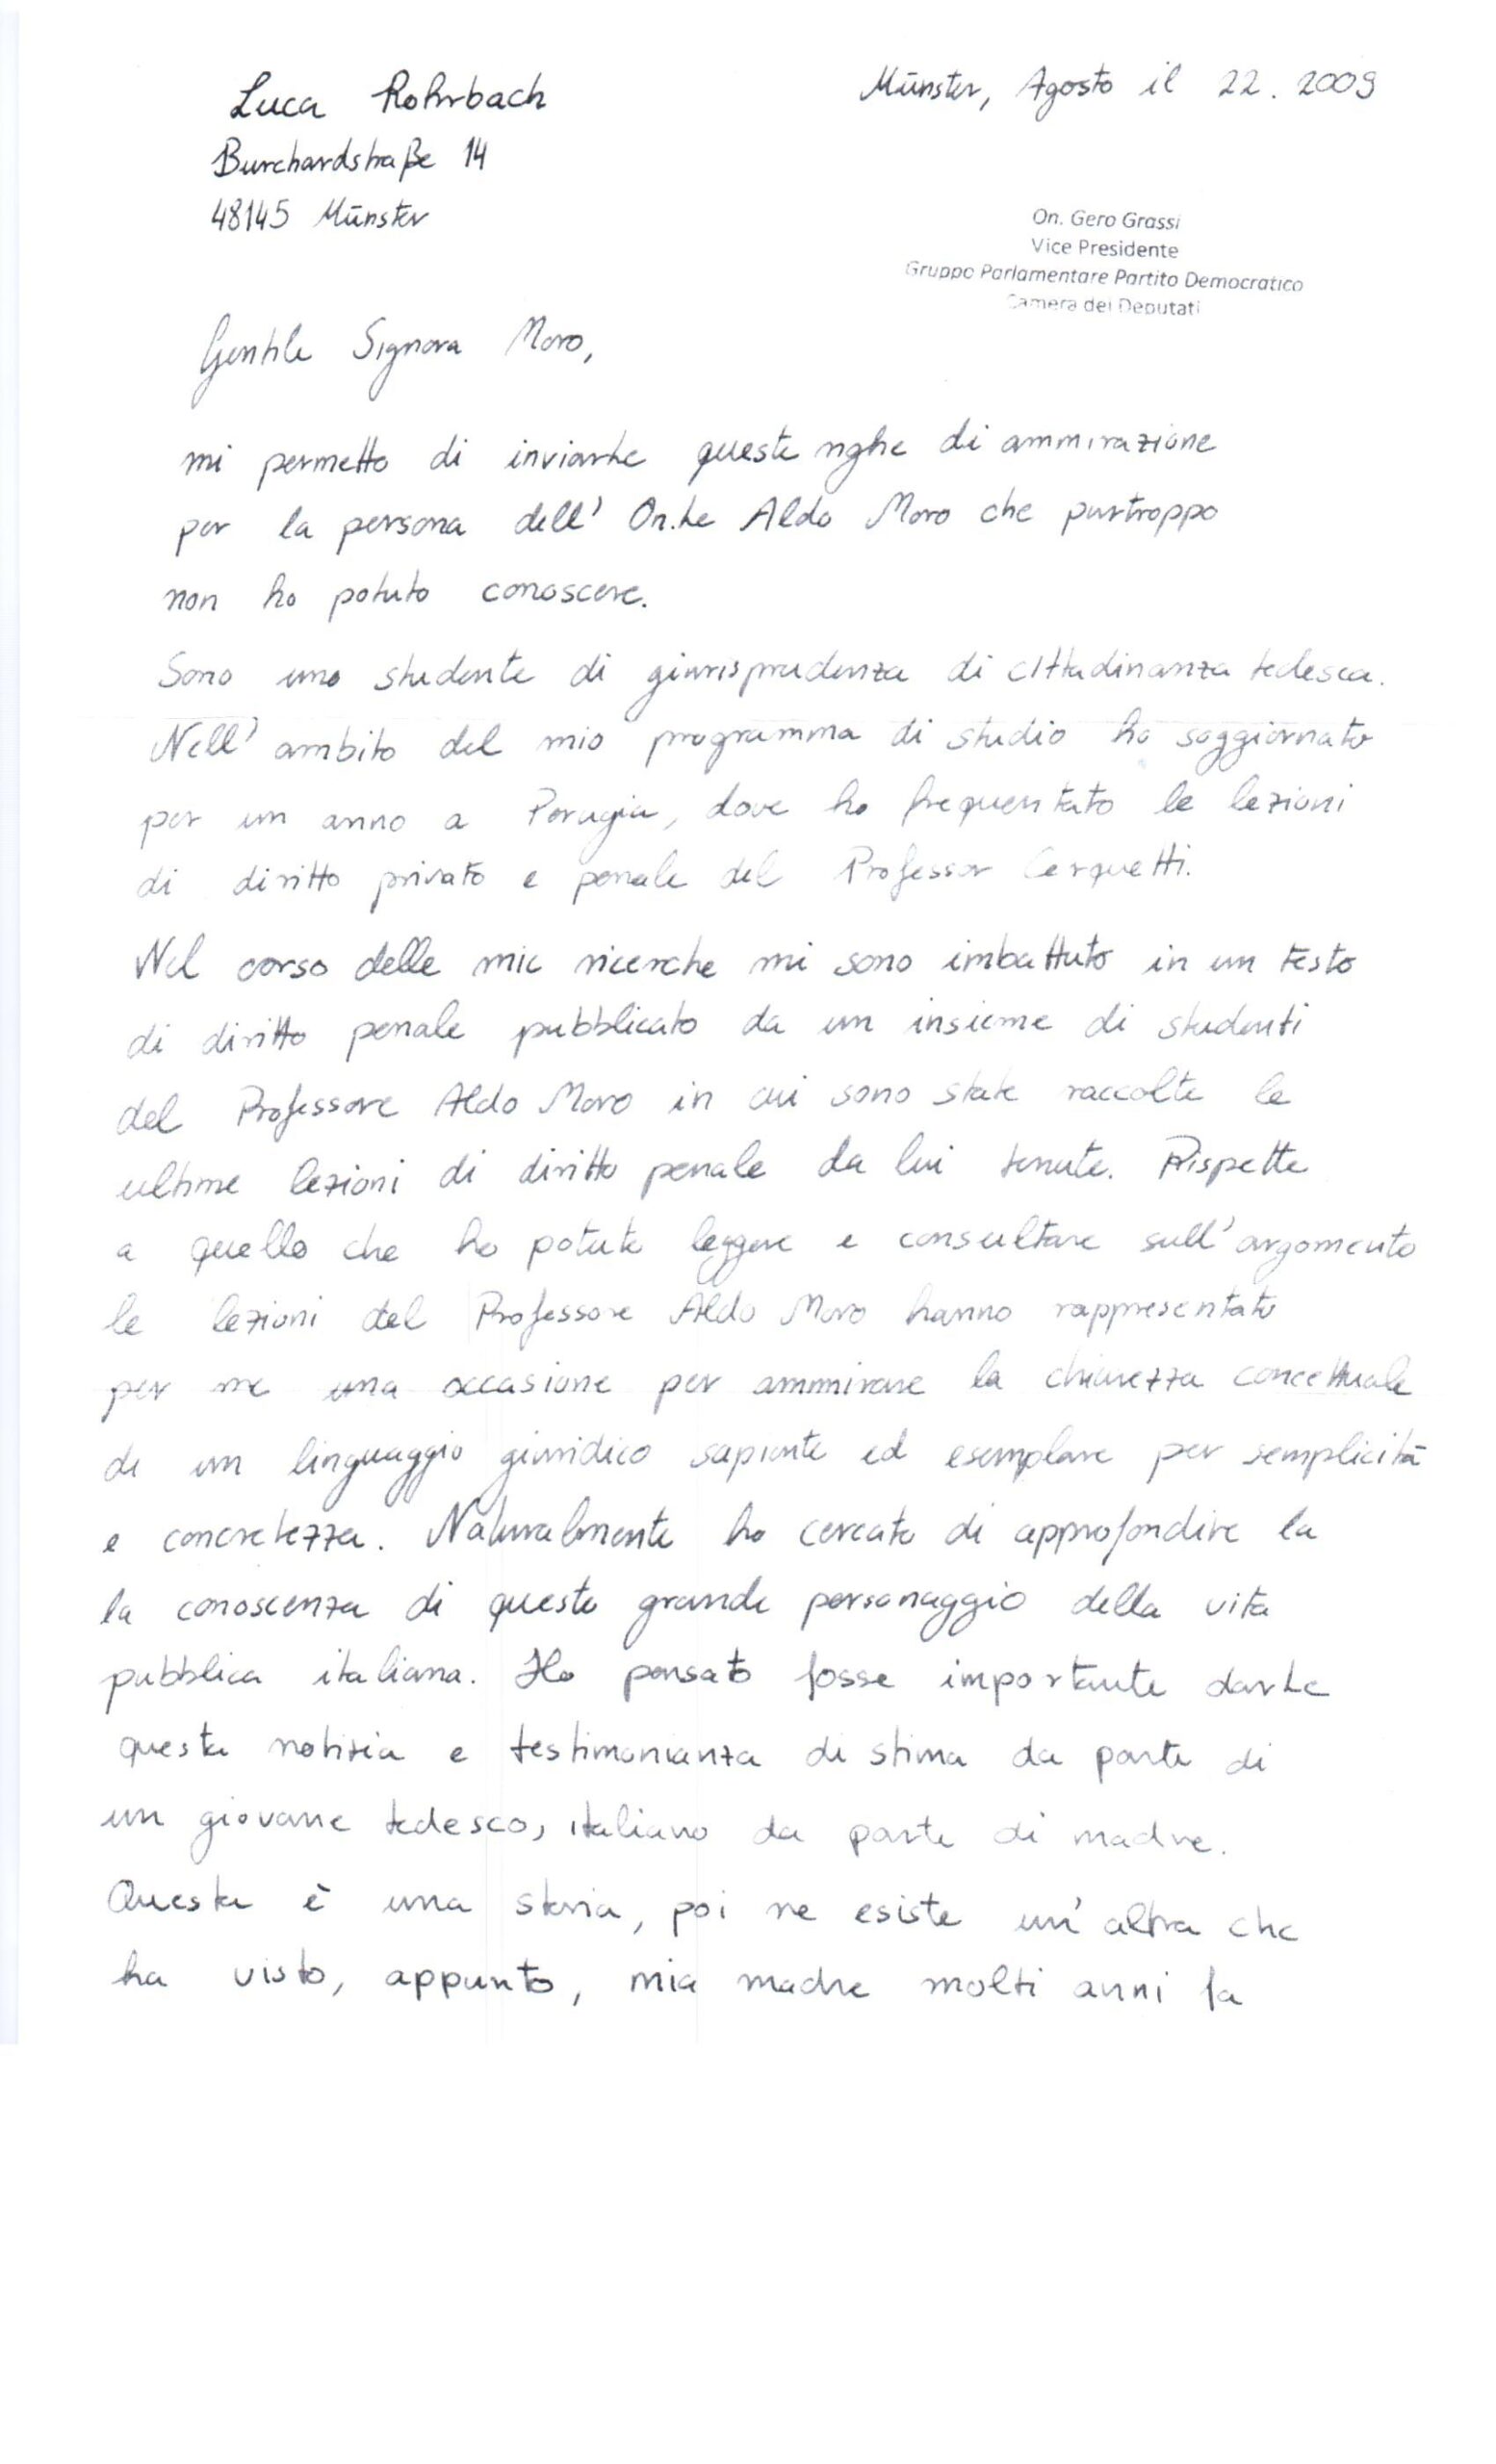 Luca Rohrbach
Münster, Agosto il 22. 2009
Burchardstraße 14
48145 Münster
On. Gero Grassi
Vice Presidente
Gruppo Parlamentare Partito Democratico
Camera dei Deputati
Gentile Signora Moro,
mi permetto di inviarLe queste righe di ammirazione
per la persona dell' On.le Aldo Moro che purtroppo
non ho potuto conoscere.
Sono uno studente di giurisprudenza di cittadinanza tedesca.
Nell' ambito del mio programma di studio ho soggiornato
per un anno a Perugia, dove ho frequentato le lezioni
di diritto privato e penale del Professor Cerquetti.
Nel corso delle mie ricerche mi sono imbattuto in un testo
di diritto penale pubblicato da un insieme di studenti
del Professore Aldo Moro in cui sono state raccolte le
ultime lezioni di diritto penale da lui tenute. Rispetto
a quello che ho potuto leggere e consultare sull' argomento
le lezioni del Professore Aldo Moro hanno rappresentato
per me una occasione per ammirare la chiarezza concettuale
di un linguaggio giuridico sapiente ed esemplare per semplicità
e concretezza. Naturalmente ho cercato di approfondire la
la conoscenza di questo grande personaggio della vita
pubblica italiana. Ho pensato fosse importante darLe
questa notizia e testimonianza di stima da parte di
un giovane tedesco, italiano da parte di madre.
Questa è una storia, poi ne esiste un' altra che
ha visto, appunto, mia madre molti anni fa